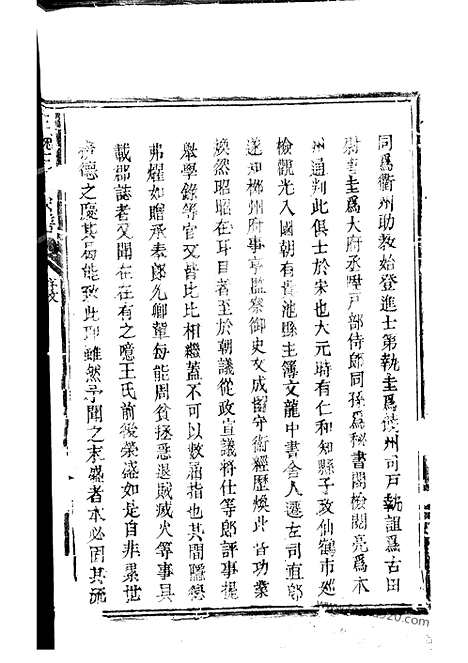 同爲衢州助教始登進士第執圭爲饒州司戶執誼爲古田
尉書圭爲大府丞嘩戶部侍郎同孫爲秘書閣檢閱亮爲本
州通判此俱士於宋也大元時有仁和知縣子孜仙鶴市廵
檢觀光入國朝有舊池縣主簿文龍中書舍人遷左司直郎
遂知郴州府事享監察御史文成留守衛經歷煥此皆功業
煥然昭昭在耳目著至於朝議從政宣議將仕等郎評事提
舉學錄等官又皆比比相繼蓋不可以數涵指也其間隱巒
弗燿如贈承素郎允卿輩每能周貧拯惡退賊滅火等事具
載郡誌者又聞在在有之噫王氏前後榮盛如是自非累世
德之慶其曷能致此耶雖然予聞之末盛者本必固其流